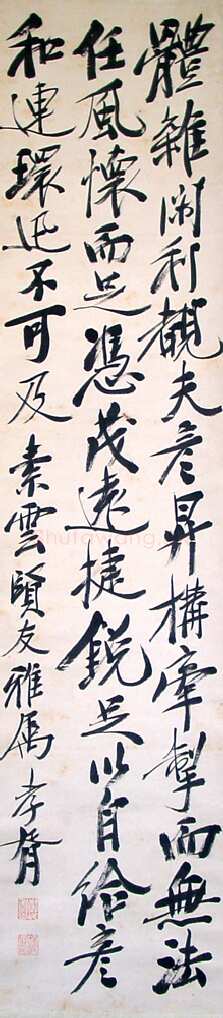 體雜閑利覩夫彥昇構牽掣而無法
任風懷而足憑茂遠捷銳足以自給彥
和連環迅不可及 素雲賢友雅屬 孝胥